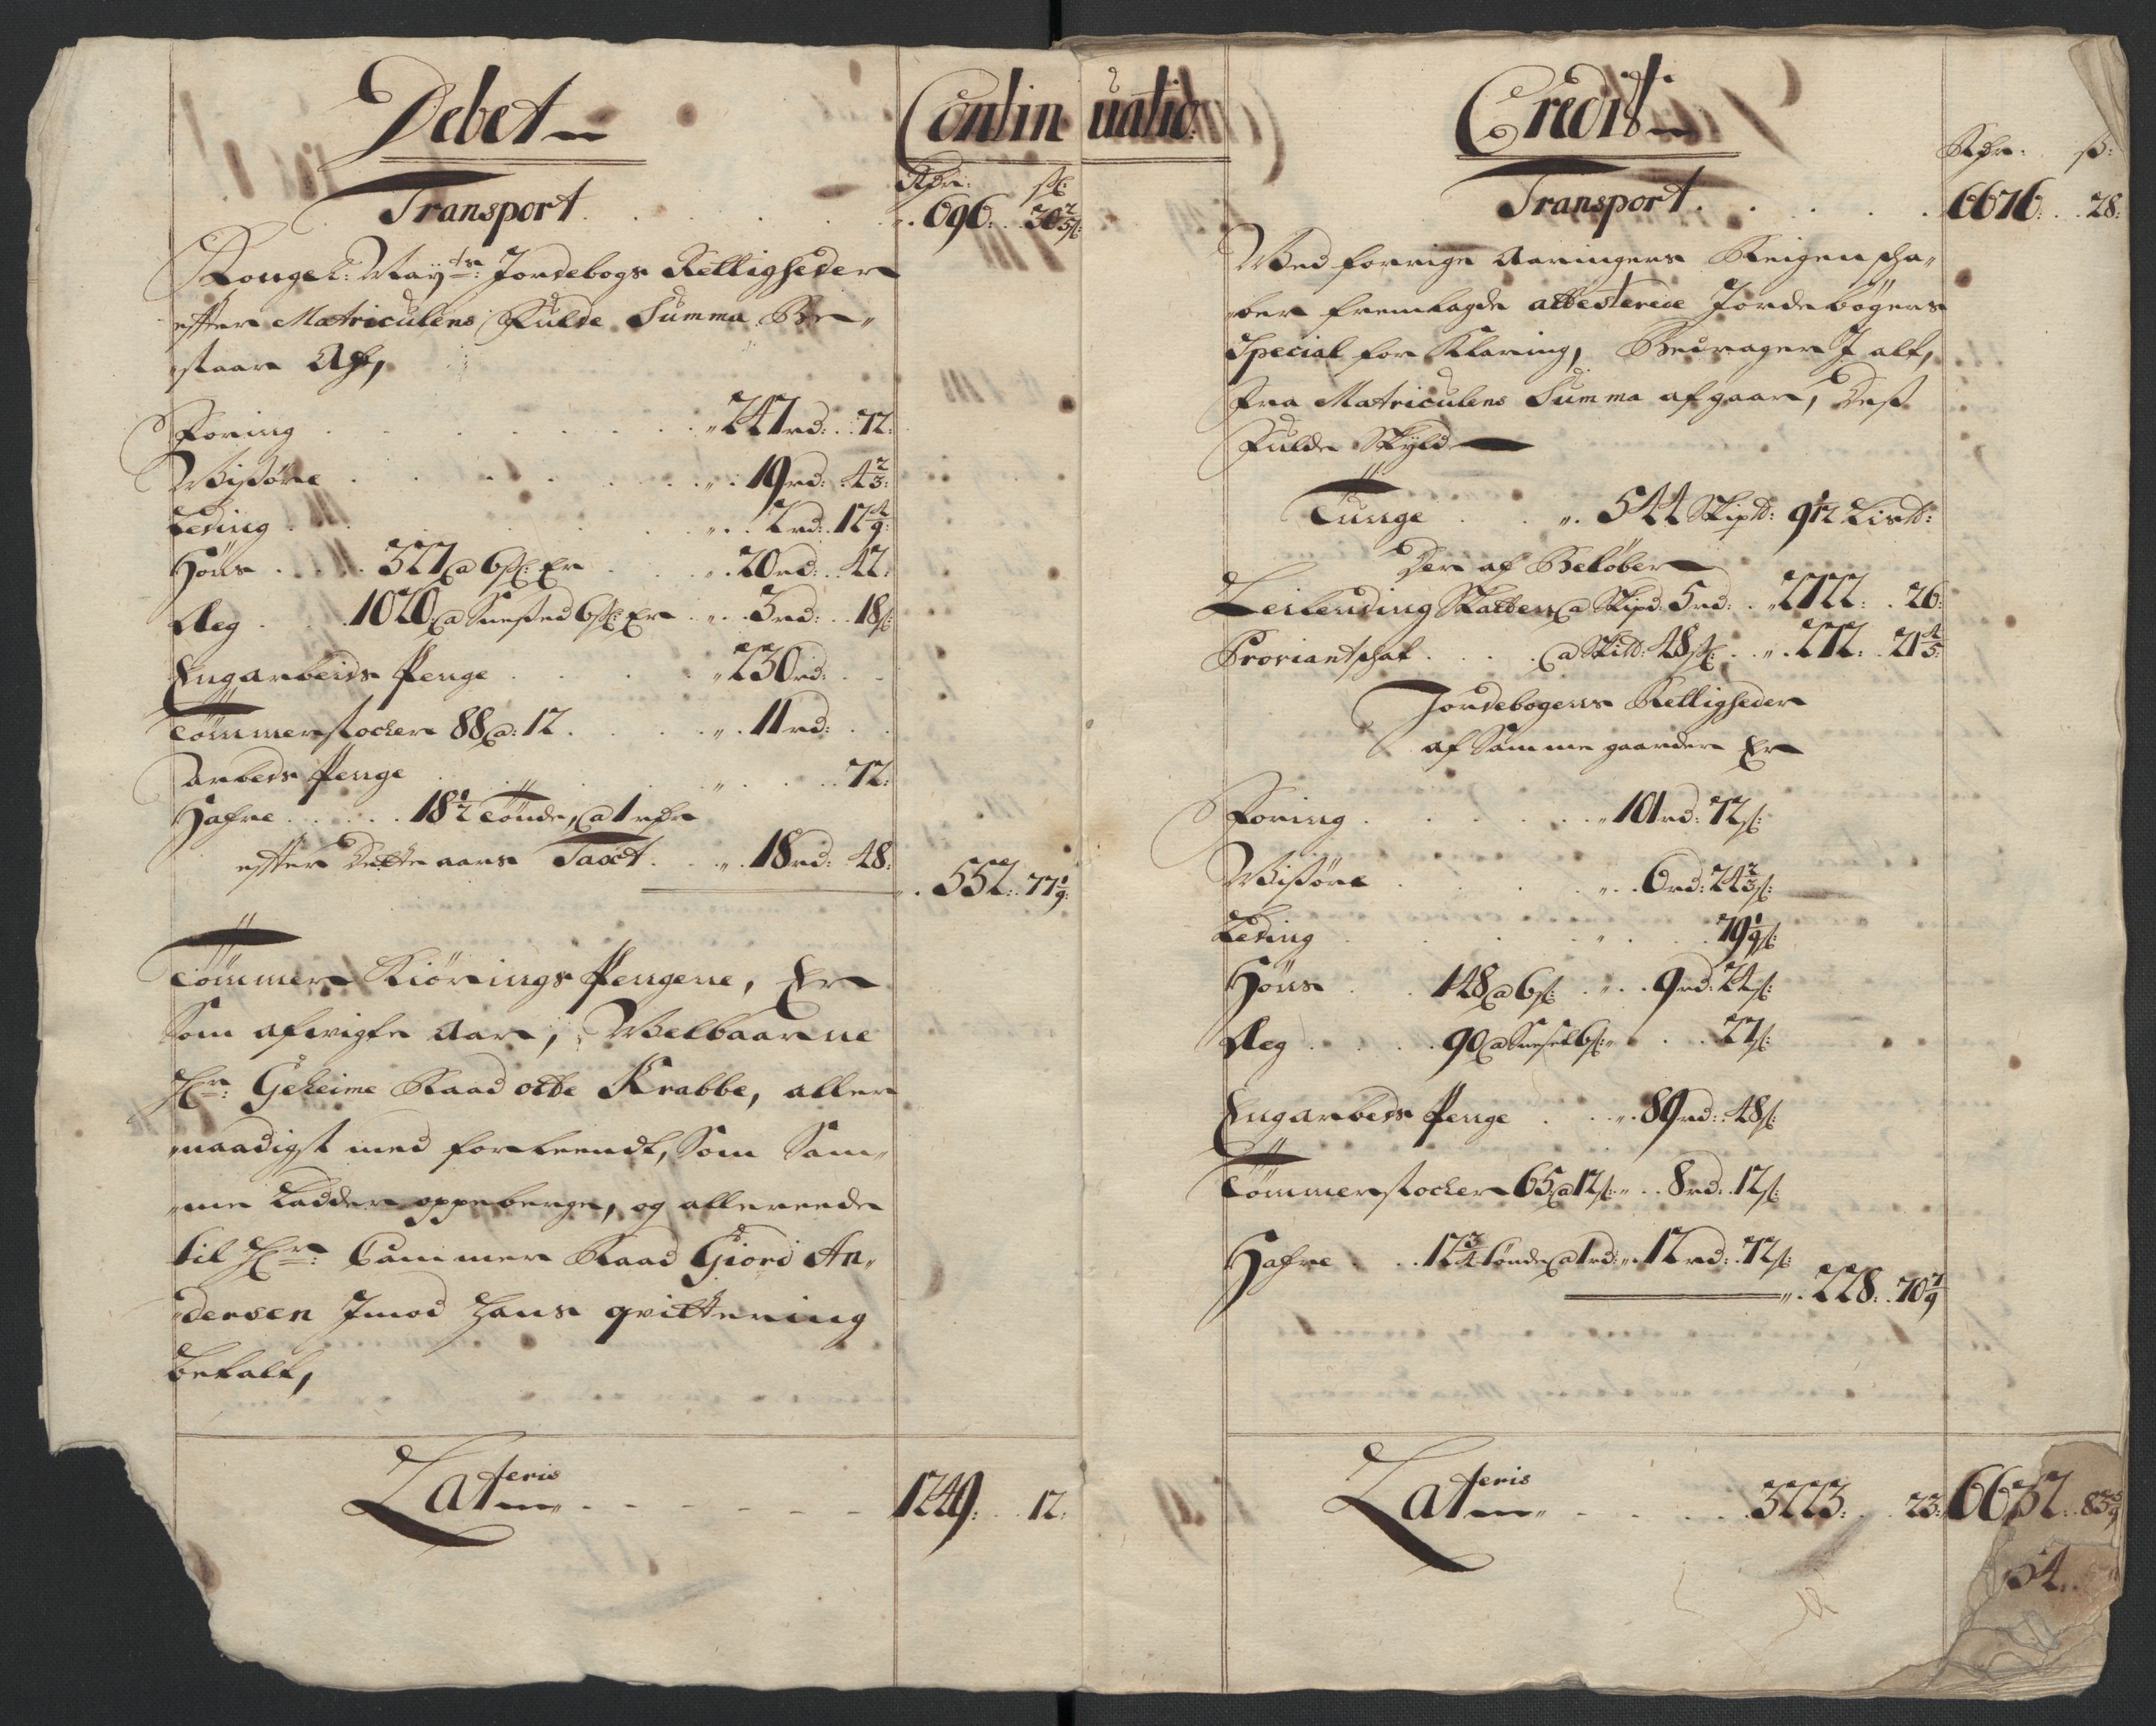 Debet
Continuatio
Rdr: ß:
Transport . . . . . . 696: 30 2/5 ß:
Kongel: Mayts: Jordebogs Rettigheder
effter Matriculens Fulde Summa Be„
staar Af,
Foring . . . 247 rd: 72:
Wisøre . . . 19 rd: 4 2/3:
Leding . . . 2 rd: 12 4/9:
Høns . . . 327 @ 6 ß: Er . . . 20 rd: 42:
Æeg . . . 1020 @ Snesed 6 ß: Er . . . 3 rd: 18 ß:
Engarbeids Penge . . . 230 rd:
Tømmerstocker 88 @: 12 . . . 11 rd:
arbeds Penge . . . 72:
Hafre . . . 18 1/2 tønde, @ 1 rdr
effter Dette aars Taxt . . . 18 rd: 48:
552: 77 1/9:
Tømmer Kiørings Pengene, Er
Som afvigte Aar, Welbaarne
Hr: Geheime Raad otte Krabbe, aller
naadigst med forleendt, Som Sam„
me Ladder oppeberge, og allereede
til Hr: Cammer Raad Giord An„
dersen Imod Hans qvittering
betalt,
Lateris . . . 1249: 12:
Credit
Rdr: ß:
Transport . . . . . 6676: 28:
Med forrige Aaringers Reigenscha„
ber fremlagde attesterede Jordebøgers
Special for Klaring, Bedrager I alt,
Fra Matriculens Summa afgaar, Dess
Fulde Skyld
Tunge . . 544 Skipd: 9 1/12 Lisd:
Der af Beløber
Leilending Skatten @ Skipd: 5 rd: . 2722: 26:
Proviantschat . . @ Skipd: 48 ß: . 272: 21 4/5:
Jordebogens Rettigheder
af Samme gaarder Er
Foring . . . 101 rd: 72 ß:
Wisøre . . . 6 rd: 24 2/3 ß:
Leding . . . 79 1/9 ß:
Høns . . 148 @ 6 ß: . . 9 rd: 24 ß:
Æeg . . . 90 @ Snesed 6 ß: . . 27 ß:
Engarbeds Penge . . 89 rd: 48 ß:
Tømmerstocker 65 @ 12 ß: . . 8 rd: 12 ß:
Hafre . . 12 3/4 tønde @ 1 rd: . 12 rd: 72 ß:
228: 70 7/9
Lateris . . . 3223: 23: 6632: 83 5/9